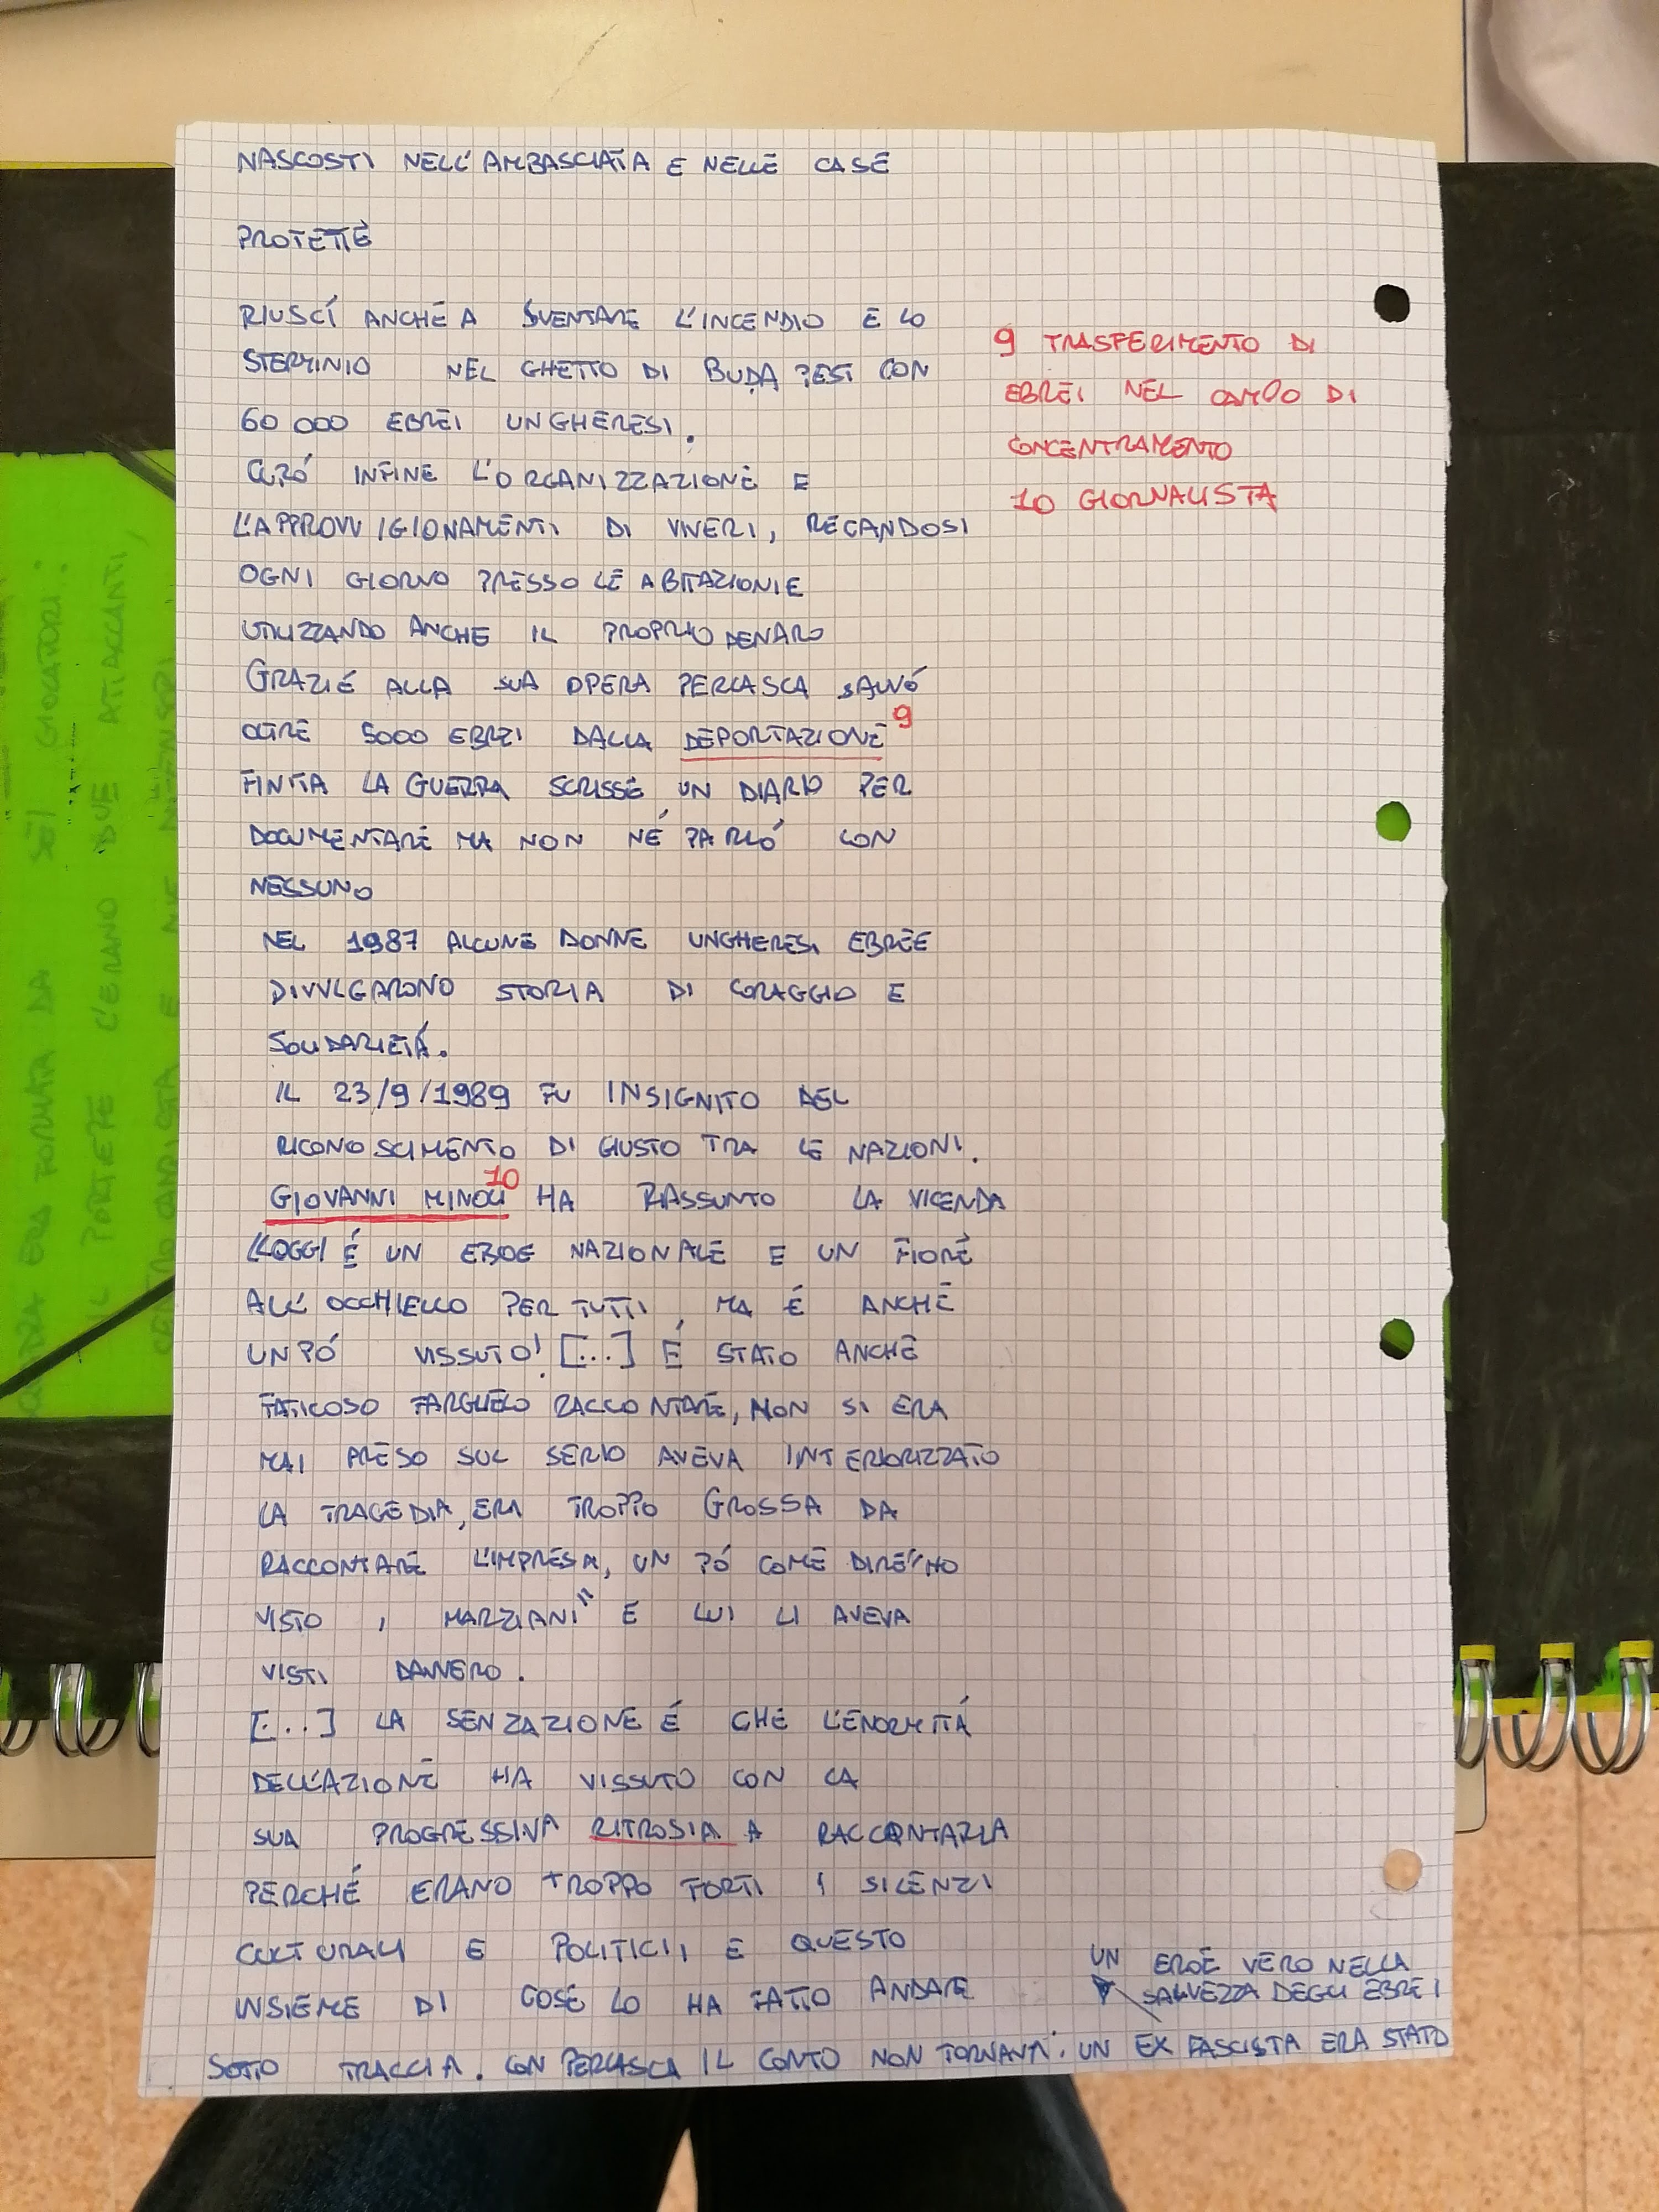 NASCOSTI NELL'AMBASCIATA E NELLE CASE
PROTETTE
RIUSCÍ ANCHE A SVENTARE L'INCENDIO E LO
STERMINIO NEL GHETTO DI BUDA PEST CON
60 000 EBREI UNGHERESI.
CURÓ INFINE L'ORGANIZZAZIONE E
L'APPROVVIGIONAMENTI DI VIVERI, RECANDOSI
OGNI GIORNO PRESSO LE ABITAZIONI E
UTILIZZANDO ANCHE IL PROPRIO DENARO
GRAZIE ALLA SUA OPERA PERLASCA SALVÓ
OLTRE 5000 EBREI DALLA DEPORTAZIONE 9
FINITA LA GUERRA SCRISSE UN DIARIO PER
DOCUMENTARE MA NON NE PARLÓ CON
NESSUNO
NEL 1987 ALCUNE DONNE UNGHERESI EBREE
DIVULGARONO STORIA DI CORAGGIO E
SOLIDARIETÁ.
IL 23/9/1989 FU INSIGNITO DEL
RICONOSCIMENTO DI GIUSTO TRA LE NAZIONI.
GIOVANNI MINOLI 10 HA RIASSUNTO LA VICENDA
"OGGI É UN EROE NAZIONALE E UN FIORE
ALL'OCCHIELLO PER TUTTI, MA É ANCHE
UN PÓ VISSUTO! [...] É STATO ANCHE
FATICOSO FARGUELO RACCONTARE, NON SI ERA
MAI PRESO SUL SERIO AVEVA INTERIORIZZATO
LA TRAGEDIA, ERA TROPPO GROSSA DA
RACCONTARE L'IMPRESA, UN PÓ COME DIRE "HO
VISTO I MARZIANI" E LUI LI AVEVA
VISTI DAVVERO.
[...] LA SENZAZIONE É CHE L'ENORMITÁ
DELL'AZIONE HA VISSUTO CON LA
SUA PROGRESSIVA RITROSIA A RACCONTARLA
PERCHÉ ERANO TROPPO FORTI I SILENZI
CULTURALI E POLITICI, E QUESTO
INSIEME DI COSE LO HA FATTO ANDARE
SOTTO TRACCIA. CON PERLASCA IL CONTO NON TORNAVA: UN EX FASCISTA ERA STATO
UN EROE VERO NELLA
SALVEZZA DEGLI EBREI
9 TRASFERIMENTO DI
EBREI NEL CAMPO DI
CONCENTRAMENTO
10 GIORNALISTA
FORMATA DA SEI GIOCATORI:
IL PORTIERE C'ERANO DUE ATTACCANTI,